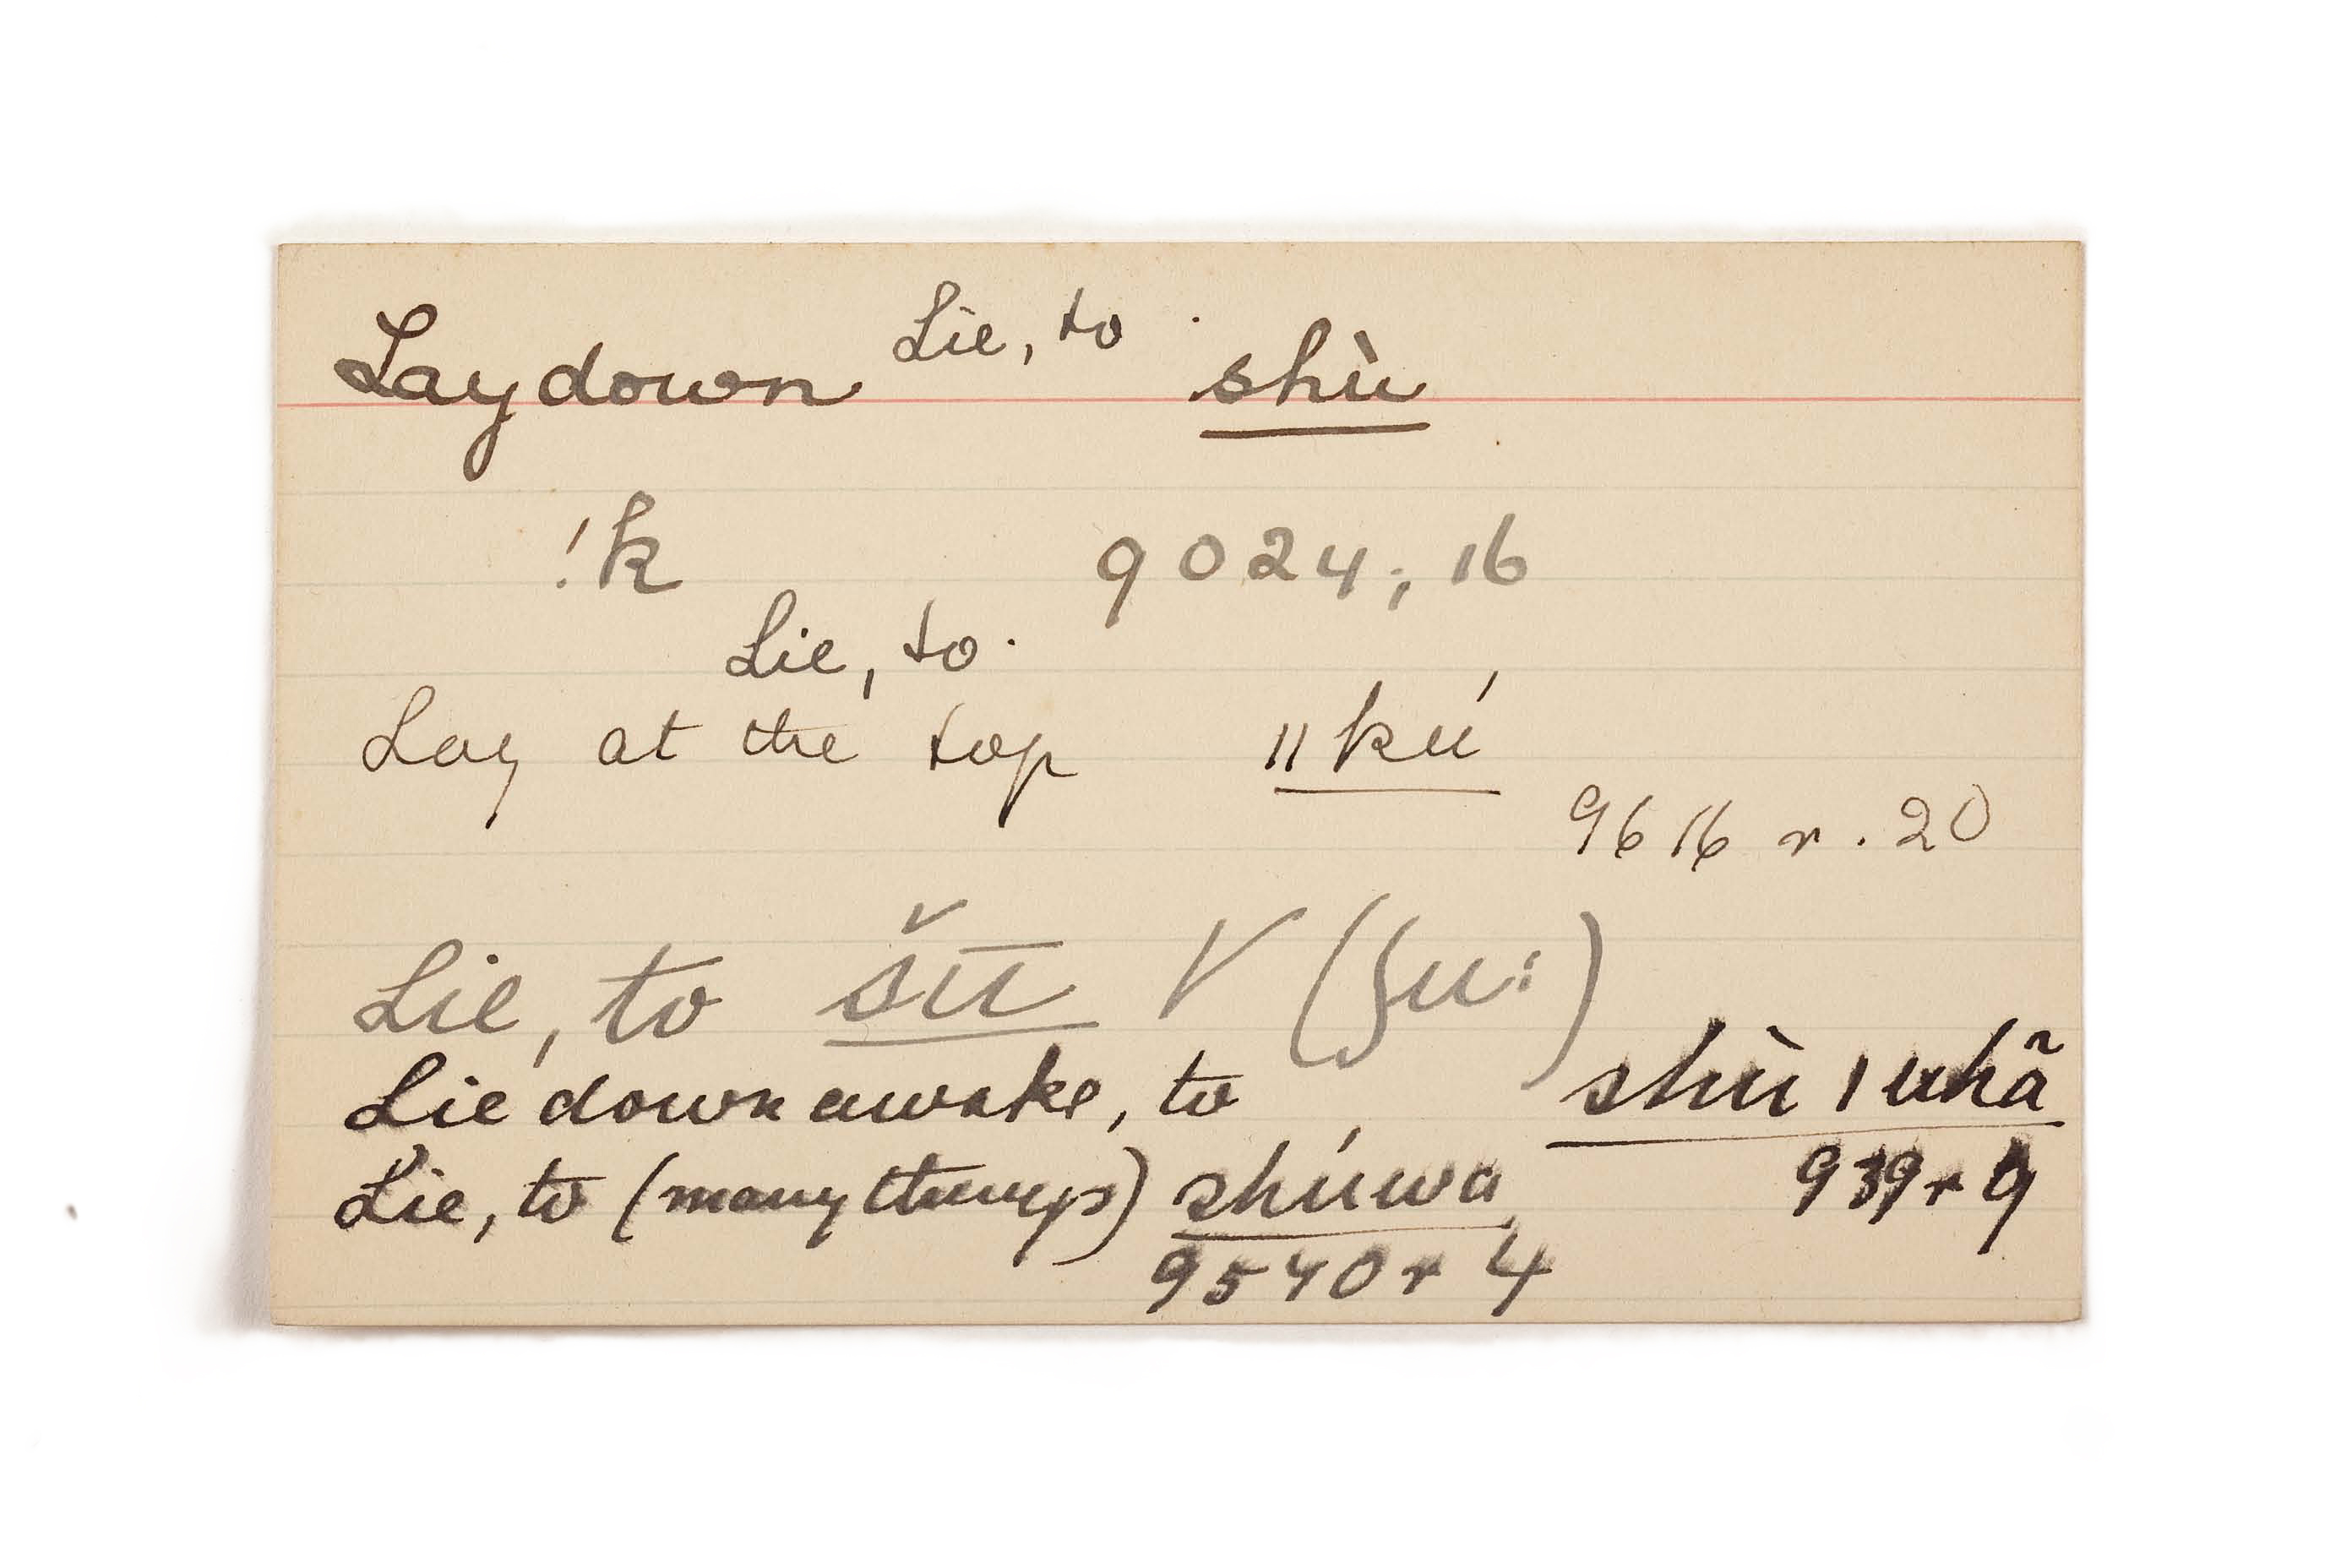 Lay down Lie, to. shù
!k 9024; 16
Lie, to.
Lay at the top ǁkú
9616 r. 20
Lie, to šū V (ʃu:)
Lie down awake, to shù ǀuhã
939 r 9
Lie, to (many things) shúwa
9540 r 4